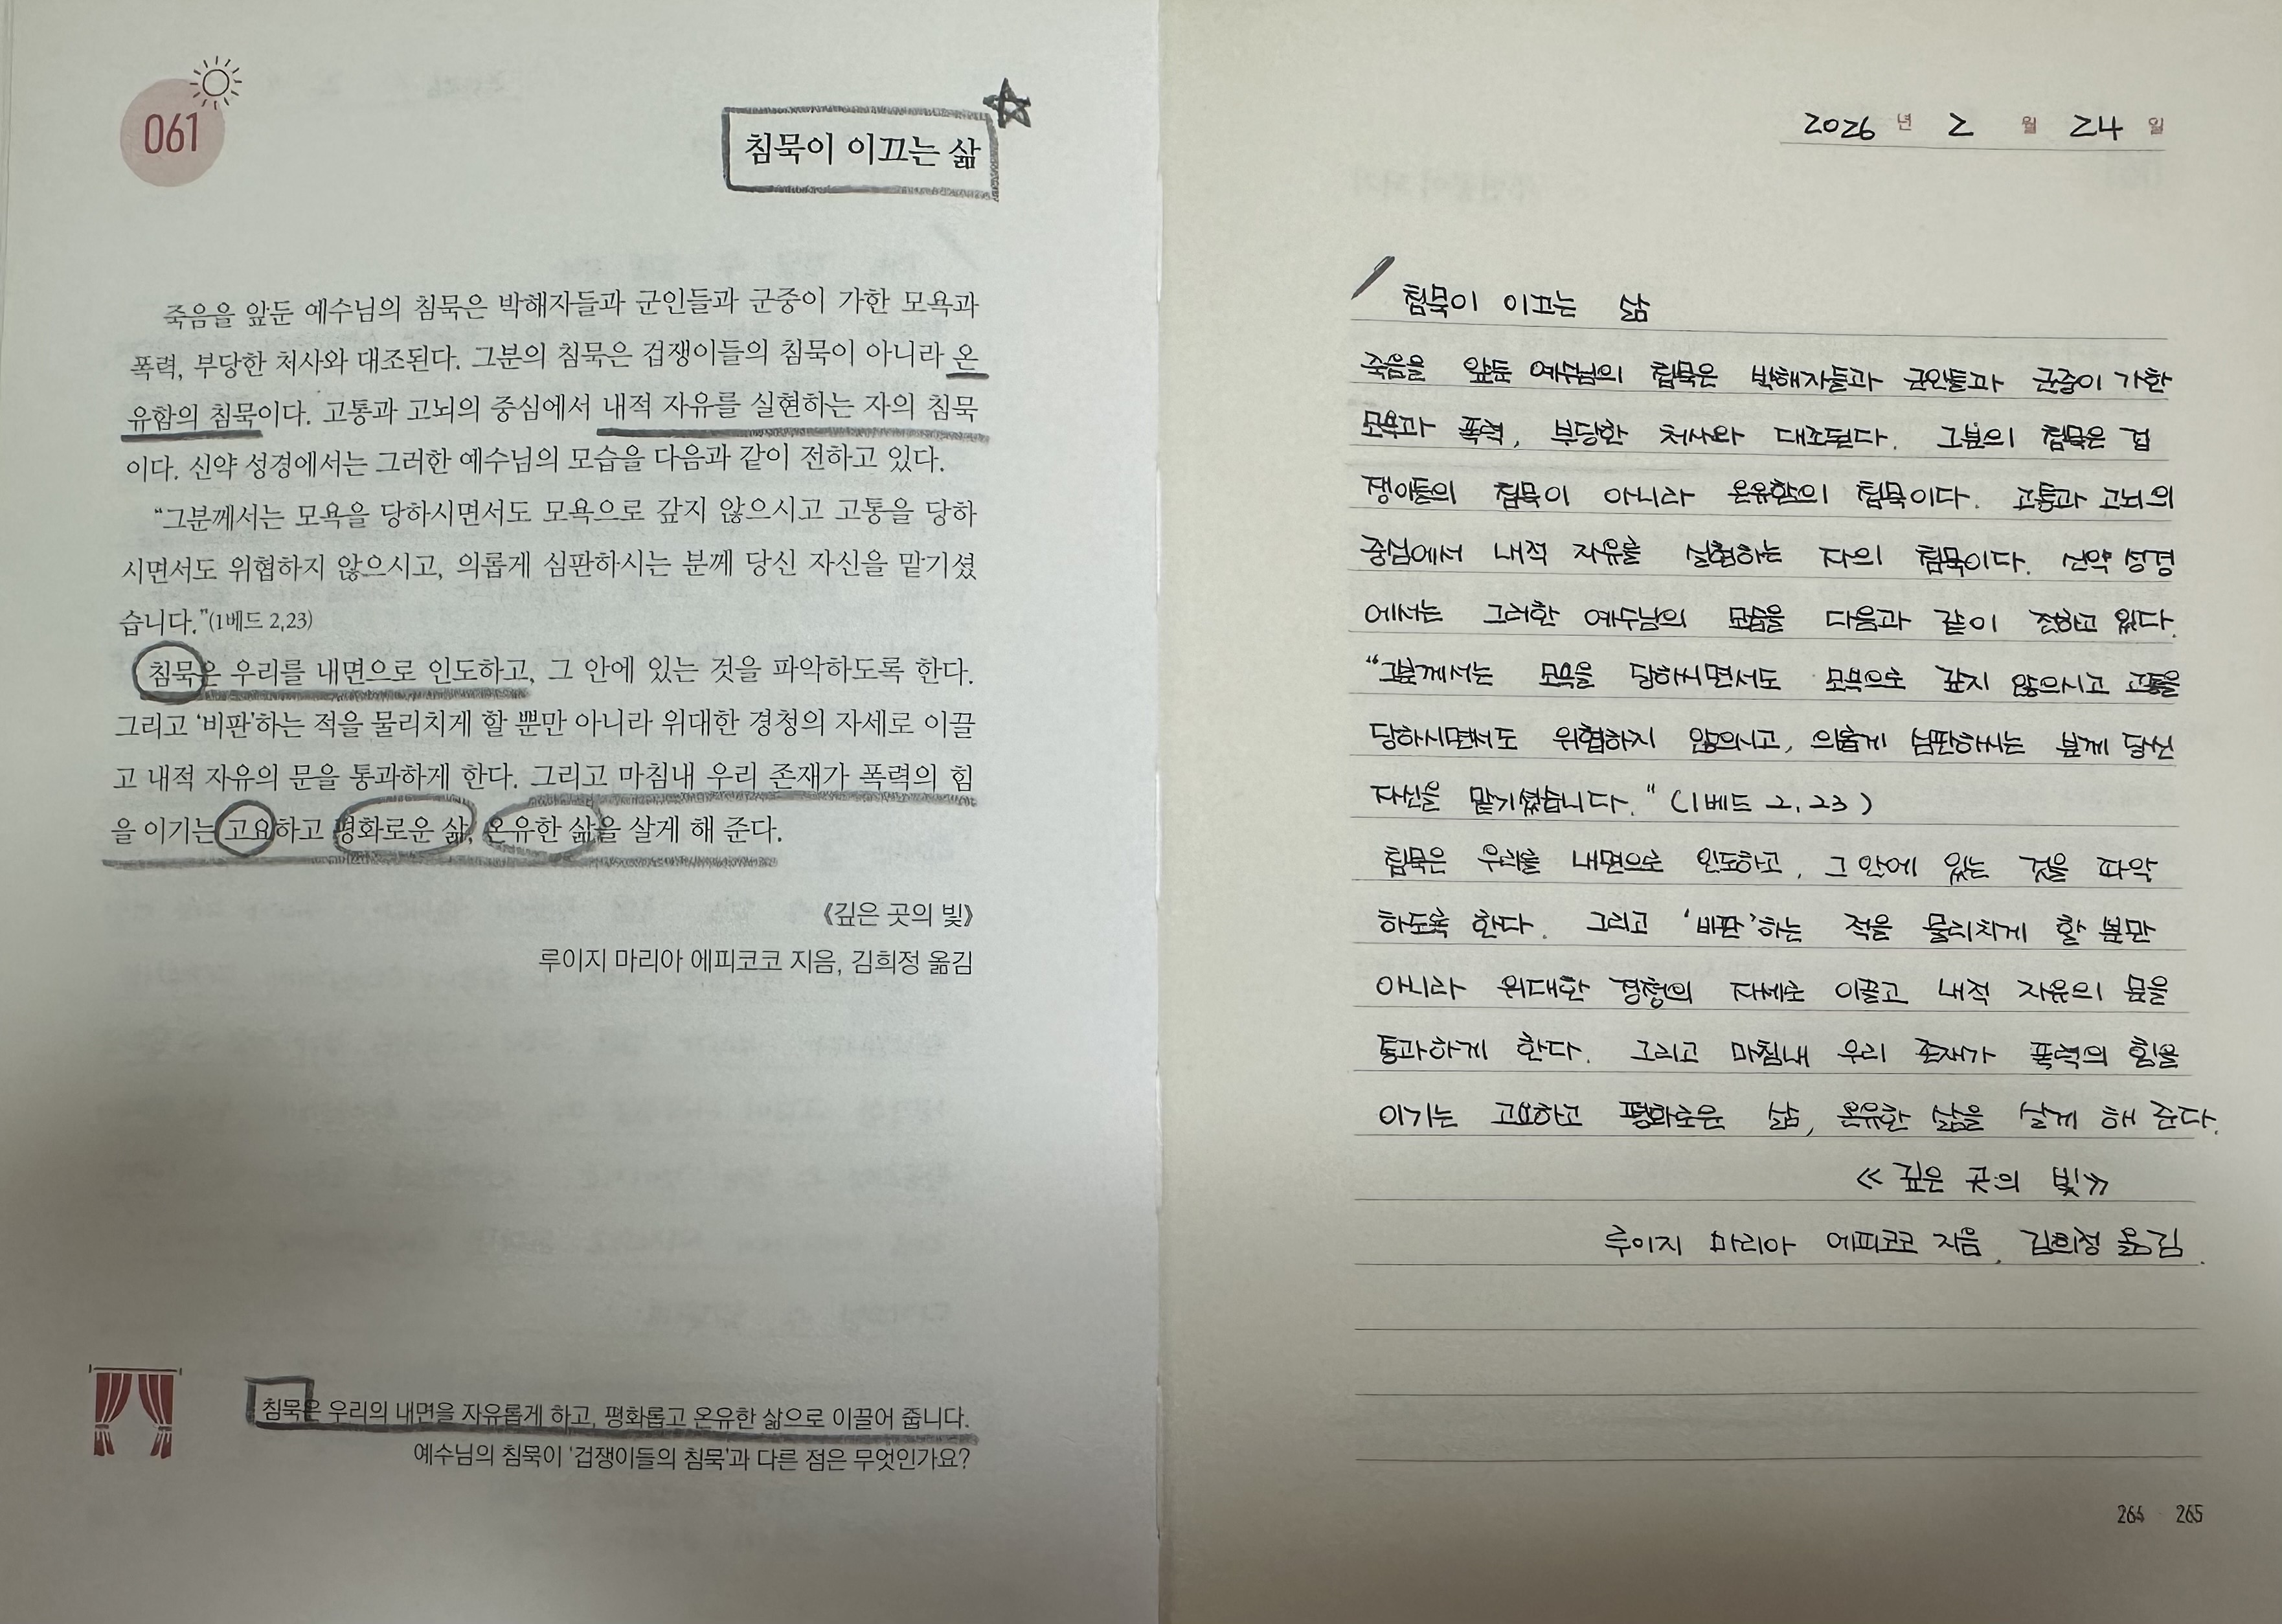 061
침묵이 이끄는 삶
죽음을 앞둔 예수님의 침묵은 박해자들과 군인들과 군중이 가한 모욕과
폭력, 부당한 처사와 대조된다. 그분의 침묵은 겁쟁이들의 침묵이 아니라 온
유함의 침묵이다. 고통과 고뇌의 중심에서 내적 자유를 실현하는 자의 침묵
이다. 신약 성경에서는 그러한 예수님의 모습을 다음과 같이 전하고 있다.
“그분께서는 모욕을 당하시면서도 모욕으로 갚지 않으시고 고통을 당하
시면서도 위협하지 않으시고, 의롭게 심판하시는 분께 당신 자신을 맡기셨
습니다.”(1베드 2,23)
침묵은 우리를 내면으로 인도하고, 그 안에 있는 것을 파악하도록 한다.
그리고 ‘비판’하는 적을 물리치게 할 뿐만 아니라 위대한 경청의 자세로 이끌
고 내적 자유의 문을 통과하게 한다. 그리고 마침내 우리 존재가 폭력의 힘
을 이기는 고요하고 평화로운 삶, 온유한 삶을 살게 해 준다.
《깊은 곳의 빛》
루이지 마리아 에피코코 지음, 김희정 옮김
침묵은 우리의 내면을 자유롭게 하고, 평화롭고 온유한 삶으로 이끌어 줍니다.
예수님의 침묵이 ‘겁쟁이들의 침묵’과 다른 점은 무엇인가요?
2026 년 2 월 24 일
침묵이 이끄는 삶
죽음을 앞둔 예수님의 침묵은 박해자들과 군인들과 군중이 가한
모욕과 폭력, 부당한 처사와 대조된다. 그분의 침묵은 겁
쟁이들의 침묵이 아니라 온유함의 침묵이다. 고통과 고뇌의
중심에서 내적 자유를 실현하는 자의 침묵이다. 신약 성경
에서는 그러한 예수님의 모습을 다음과 같이 전하고 있다.
“그분께서는 모욕을 당하시면서도 모욕으로 갚지 않으시고 고통을
당하시면서도 위협하지 않으시고, 의롭게 심판하시는 분께 당신
자신을 맡기셨습니다.” (1베드 2,23)
침묵은 우리를 내면으로 인도하고, 그 안에 있는 것을 파악
하도록 한다. 그리고 ‘비판’하는 적을 물리치게 할 뿐만
아니라 위대한 경청의 자세로 이끌고 내적 자유의 문을
통과하게 한다. 그리고 마침내 우리 존재가 폭력의 힘을
이기는 고요하고 평화로운 삶, 온유한 삶을 살게 해 준다.
≪깊은 곳의 빛≫
루이지 마리아 에피코코 지음, 김희정 옮김.
264 265